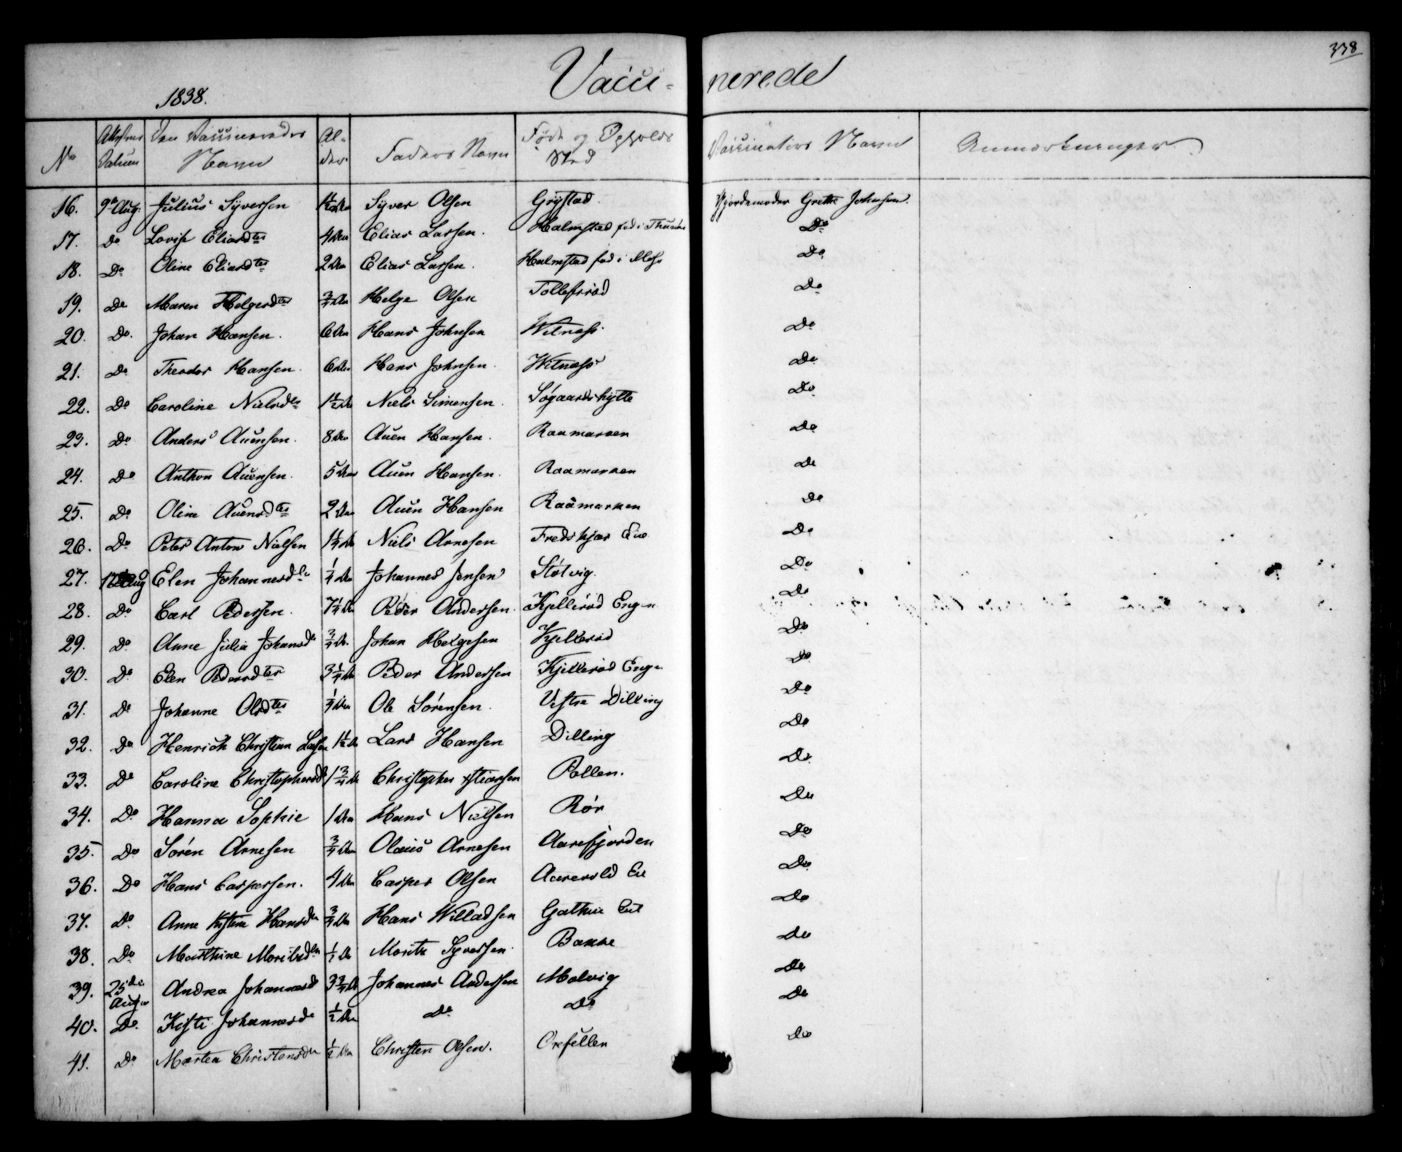 338
Vacci- nerede
1838.
No Attestens Datum Den Vaccineredes Navn Al- der Faders Navn Føde og Opholds Sted Vaccinators Navn Anmærkninger
16. 9de Aug. Julius Syversen 1½ Syver Olsen Grystad. Gjordemoder Grethe Johnsen
17. Do Lovise Eliasdter 4 Elias Larsen. Halmstad fød i Do
18. Do Oline Eliasdter 2 Elias Larsen. Halmstad fød i Moss Do
19. Do Maren Helgesdter ¾ Helge Olsen Tollefsrød Do
20. Do. Johan Hansen. 6 Hans Johnsen Vitnæss. Do
21. Do Theodor Hansen. 6 Hans Johnsen. Vitnæss Do
22. Do Caroline Nielsdtr 1½ Niels Simensen. Søgaardshytte Do
23. Do Anders Auensen. 8 Auen Hansen. Raamarken Do
24. Do Anthon Auensen. 5 Auen Hansen. Raamarken Do
25. Do Oline Auensdter 2 Auen Hansen Raamarken Do
26. Do Peter Anton Nielsen 1¼ Niels Arnesen Fredskjær Eie Do
27. Aug Elen Johannesdtr ¼ Johannes Jensen Støtvig. Do
28. Do Carl Pedersen. 7½ Peder Andersen Kjellerød Engn Do
29. Do Anne Julia Johansdr ¾ Johan Helgesen Kjellerød Do
30. Do Elen Pedersdter 3½ Peder Andersen Kjellerød Engn Do
31. Do Johanne Olsdter ¼ Ole Sørensen. Vestre Dilling Do
32. Do Henrich Christian Larsen 1½ Lars Hansen Dilling Do
33. Do Caroline Christophersdtr 1¾ Christopher Pollen. Do
34. Do Hanna Sophie 1 Hans Nielsen Rør Do
35. Do Søren Arnesen ¾ Olaus Arnesen Aarefjorden Do
36. Do Hans Caspersen. 4 Casper Olsen Aarevold Eie Do
37. Do Anne Kistine Hansdtr ¾ Hans Willadsen Gathue Eiet Do
38. Do Mathine Moritsdtr ½ Morits Syversen. Bakke Do
39. 25de Aug Andrea Johannesd 3¾ Johannes Andersen Molvig Do
40. Do Kisti Johannesdr ½ Do Do Do
41. Do Martea Christensdtr ½ Christen Olsen. Orefellen Do